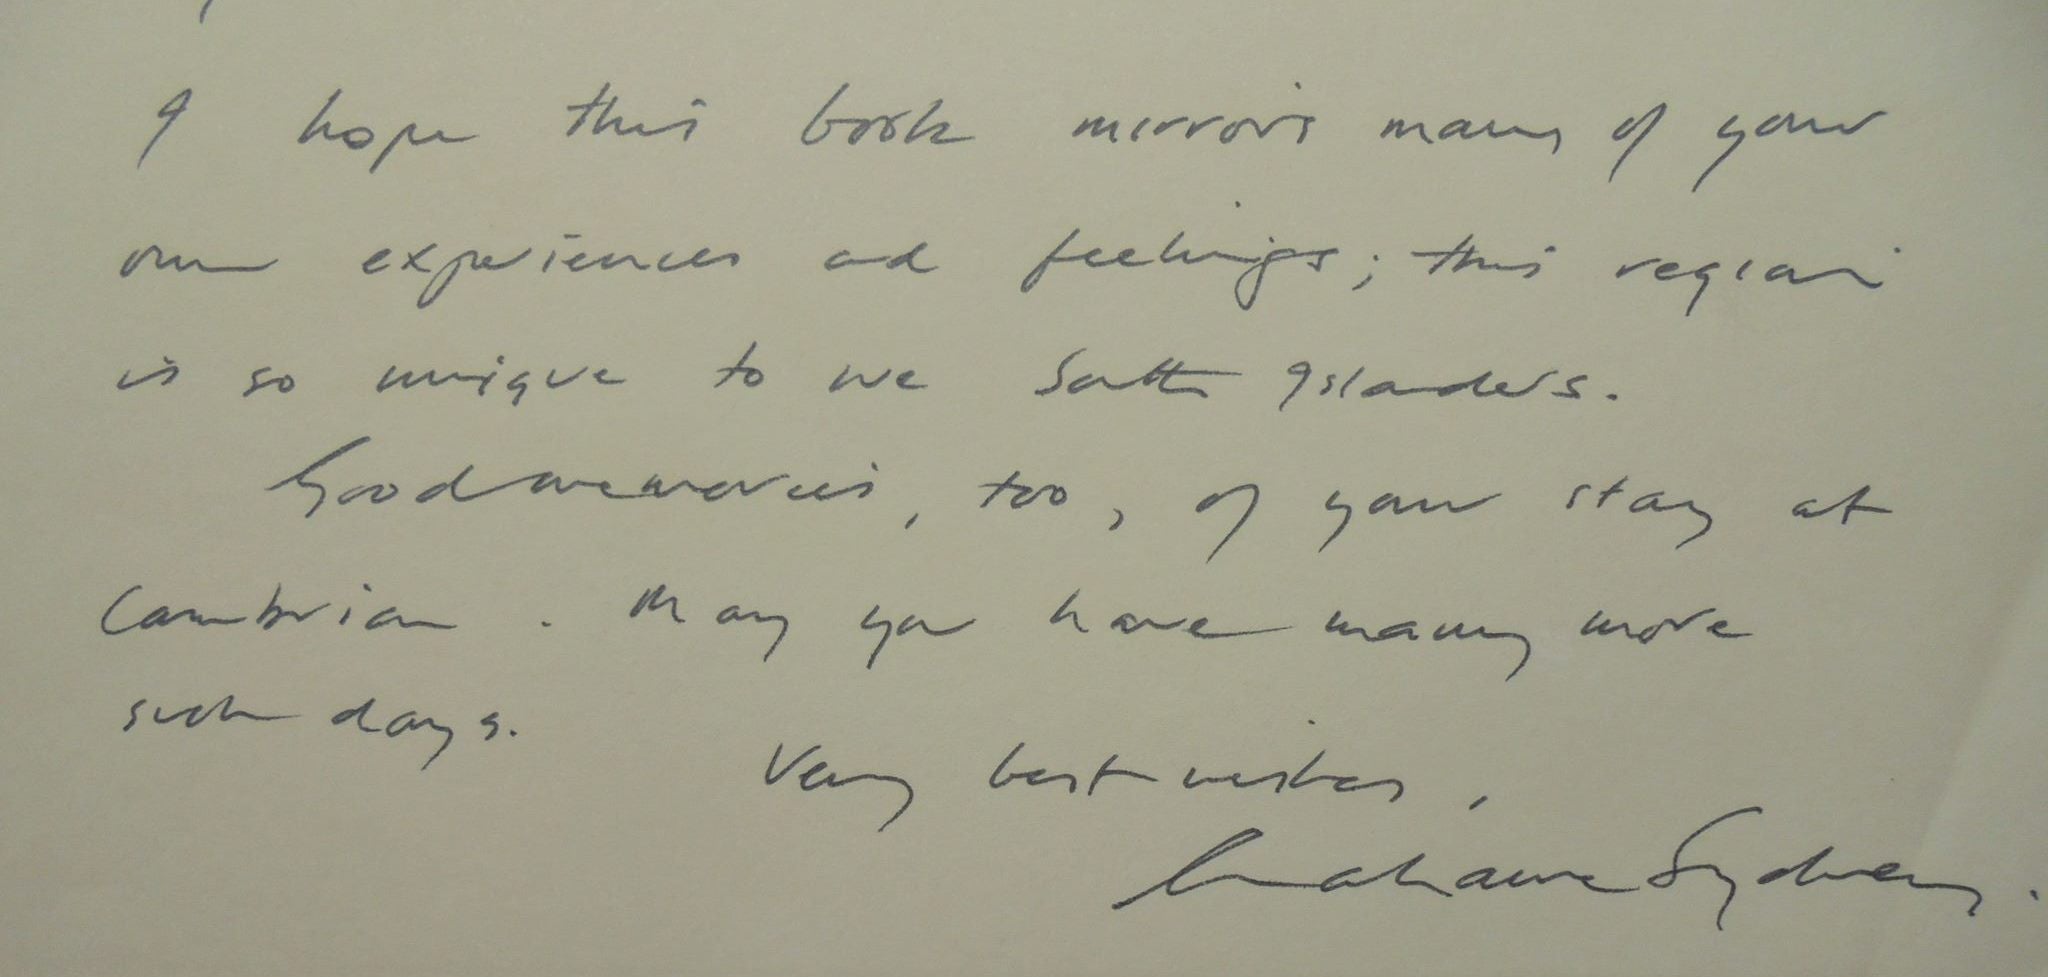 I hope this book mirrors many of your
own experiences and feelings; this region
is so unique to we South Islanders.
Good memories, too, of your stay at
Cambrian. May you have many more
such days.
Very best wishes,
Grahame Sydney.